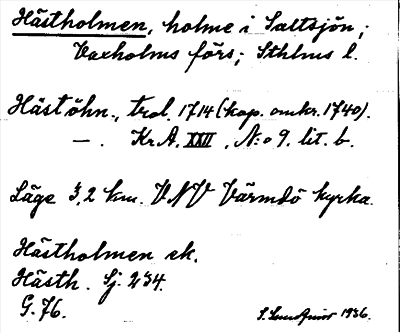 Hästholmen, holme i Saltsjön;
Vaxholms förs; Sthlms l.
Hästöhn., trol. 1714 (kop. omkr. 1740).
— . Kr.A. XXII, N:o 9. lit. b.
Läge 3,2 km. VNV Värmdö kyrka.
Hästholmen ek.
Hästh. Sj. 234.
G. 76.
1936.